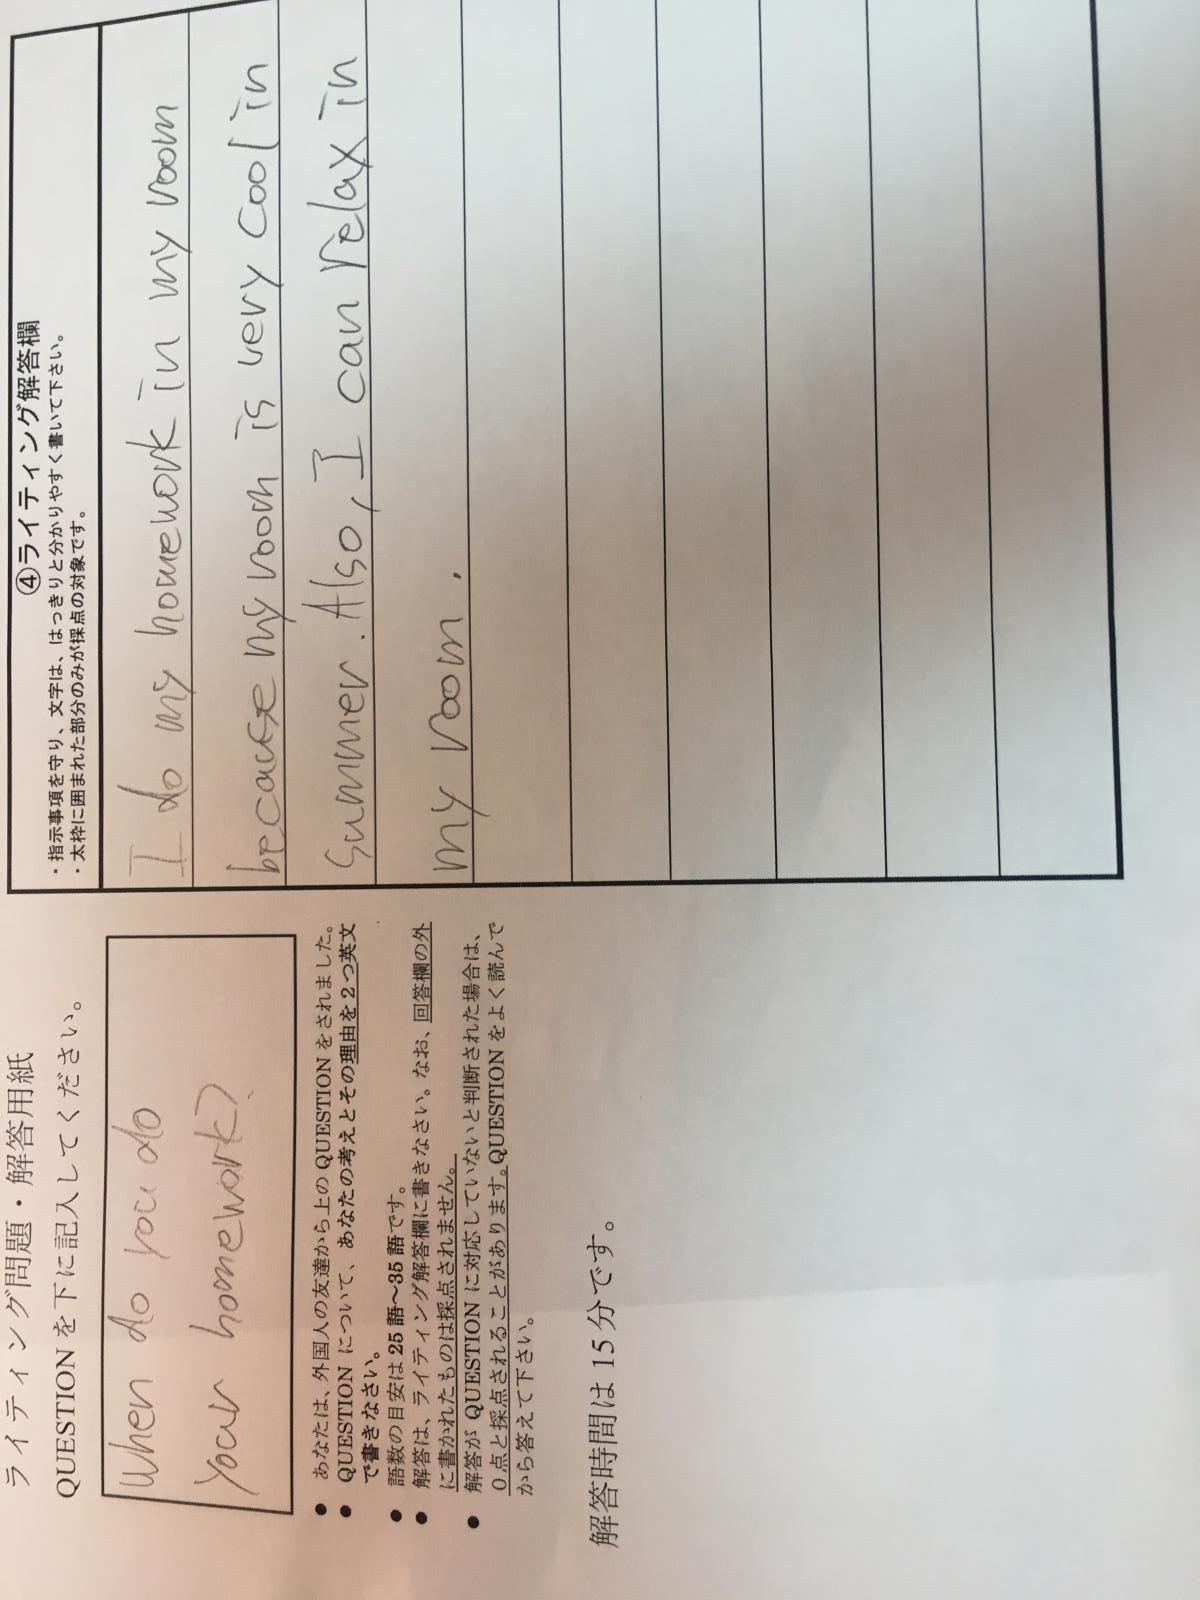 ライティング問題・解答用紙
QUESTION を下に記入してください。
When do you do
your homework?
● あなたは、外国人の友達から上の QUESTION をされました。
● QUESTION について、あなたの考えとその理由を2つ英文
で書きなさい。
● 語数の目安は 25 語〜35 語です。
● 解答は、ライティング解答欄に書きなさい。なお、回答欄の外
に書かれたものは採点されません。
● 解答が QUESTION に対応していないと判断された場合は、
0点と採点されることがあります。QUESTION をよく読んで
から答えて下さい。
解答時間は 15 分です。
④ライティング解答欄
・指示事項を守り、文字は、はっきりと分かりやすく書いて下さい。
・太枠に囲まれた部分のみが採点の対象です。
I do my homework in my room
because my room is very cool in
summer. Also, I can relax in
my room.